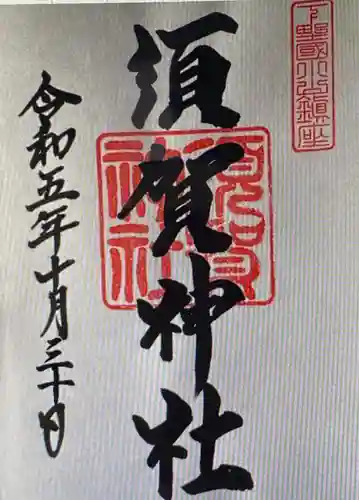 下野國小山鎮座
須賀神社
須賀神社
令和五年十月三十日